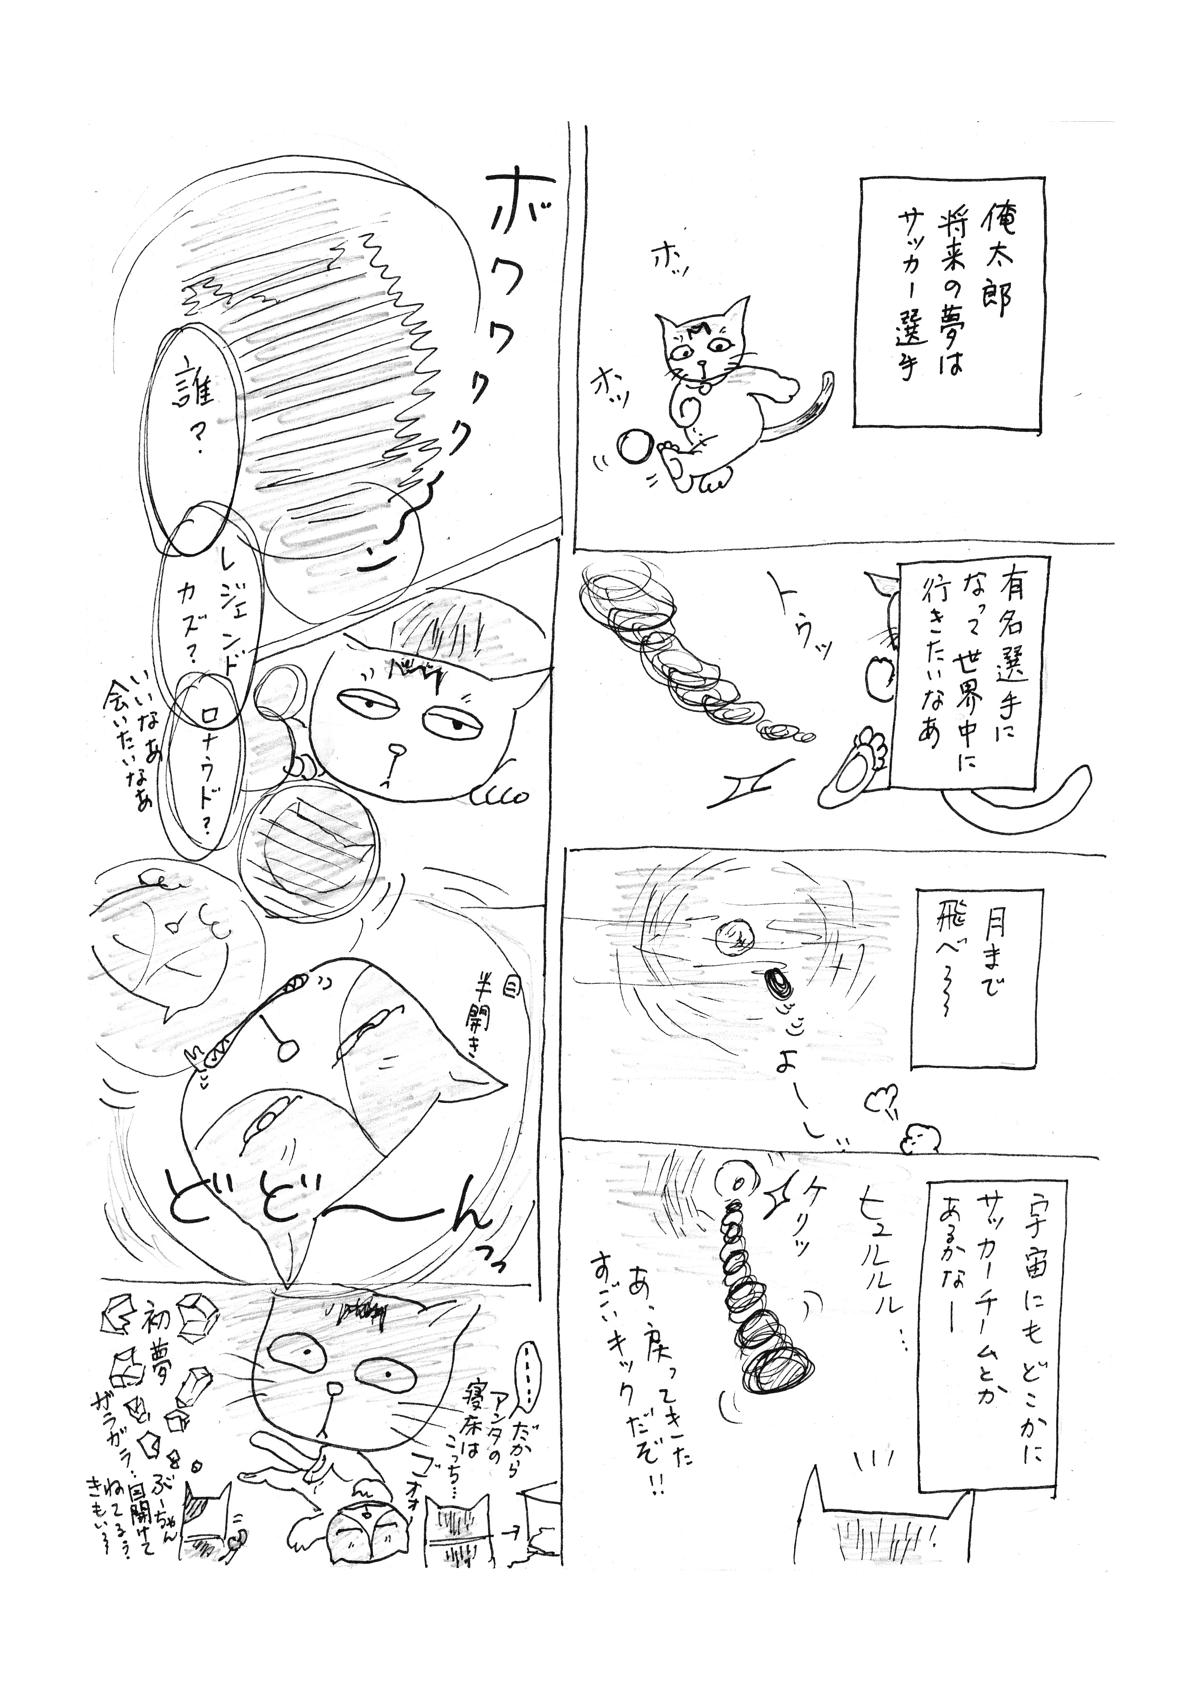 俺太郎
将来の夢は
サッカー選手
ホッ
ホッ
有名選手に
なって世界中に
行きたいなあ
トゥッ
月まで
飛べ〜〜〜
よーし
宇宙にもどこかに
サッカーチームとか
あるかなー
ヒュルルル…
ケリッ
あ、戻ってきた
すごいキックだぞ!!
ボワワワワワ〜ン
誰?
レジェンド
カズ?
ロナウド?
いいなあ
会いたいなあ
目
半開き
どどーんっっ
……
だから
アンタの
寝床は
こっち…
ゴオオ
初夢
ガラガラ…
ぶーちゃん
目開けて
ねてるぅ
きもい〜〜